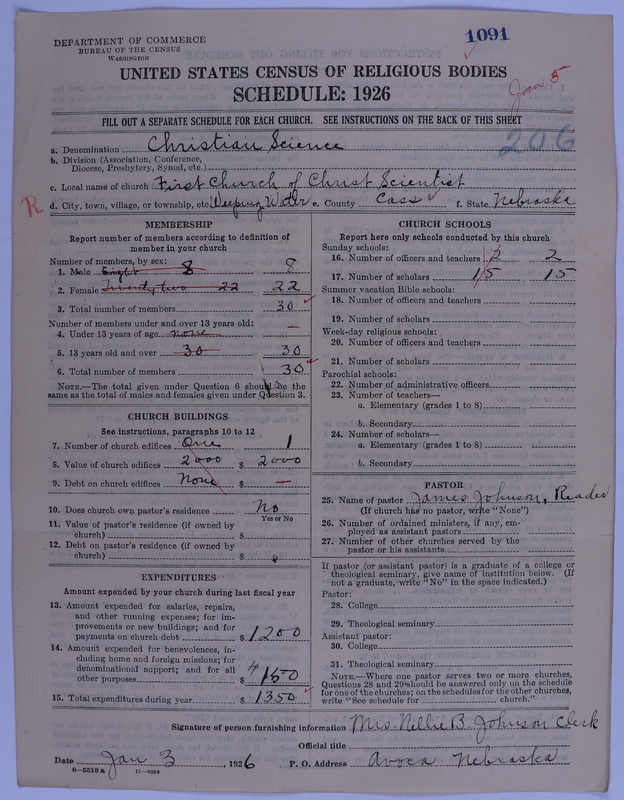 DEPARTMENT OF COMMERCE
BUREAU OF THE CENSUS
WASHINGTON
1091
UNITED STATES CENSUS OF RELIGIOUS BODIES
SCHEDULE: 1926
Jan 5
FILL OUT A SEPARATE SCHEDULE FOR EACH CHURCH. SEE INSTRUCTIONS ON THE BACK OF THIS SHEET
206
a. Denomination Christian Science
b. Division (Association, Conference,
Diocese, Presbytery, Synod, etc.)
c. Local name of church First Church of Christ Scientist
R
d. City, town, village, or township, etc. Weeping Water e. County Cass f. State Nebraska
MEMBERSHIP
Report number of members according to definition of
member in your church
Number of members, by sex:
1. Male Eight 8 8
2. Female Twenty two 22 22
3. Total number of members 30
Number of members under and over 13 years old:
4. Under 13 years of age none —
5. 13 years old and over 30 30
6. Total number of members 30
NOTE.—The total given under Question 6 should be the
same as the total of males and females given under Question 3.
CHURCH BUILDINGS
See instructions, paragraphs 10 to 12
7. Number of church edifices One 1
8. Value of church edifices 2000 $ 2000
9. Debt on church edifices None $ —
10. Does church own pastor's residence No
Yes or No
11. Value of pastor's residence (if owned by
church) $
12. Debt on pastor's residence (if owned by
church) $
EXPENDITURES
Amount expended by your church during last fiscal year
13. Amount expended for salaries, repairs,
and other running expenses; for im-
provements or new buildings; and for
payments on church debt $ 1200
14. Amount expended for benevolences, in-
cluding home and foreign missions; for
denominational support; and for all
other purposes $ 150
15. Total expenditures during year $ 1350
CHURCH SCHOOLS
Report here only schools conducted by this church
Sunday schools:
16. Number of officers and teachers 2 2
17. Number of scholars 15 15
Summer vacation Bible schools:
18. Number of officers and teachers
19. Number of scholars
Week-day religious schools:
20. Number of officers and teachers
21. Number of scholars
Parochial schools:
22. Number of administrative officers
23. Number of teachers—
a. Elementary (grades 1 to 8)
b. Secondary
24. Number of scholars—
a. Elementary (grades 1 to 8)
b. Secondary
PASTOR
25. Name of pastor James Johnson, Reader
(If church has no pastor, write "None")
26. Number of ordained ministers, if any, em-
ployed as assistant pastors
27. Number of other churches served by the
pastor or his assistants
If pastor (or assistant pastor) is a graduate of a college or
theological seminary, give name of institution below. (If
not a graduate, write "No" in the space indicated.)
Pastor:
28. College
29. Theological seminary
Assistant pastor:
30. College
31. Theological seminary
NOTE.—Where one pastor serves two or more churches,
Questions 28 and 29 should be answered only on the schedule
for one of the churches; on the schedules for the other churches,
write "See schedule for church."
Signature of person furnishing information Mrs Nellie B. Johnson Clerk
Official title
Date Jan 3, 1926 P. O. Address Avoca Nebraska
8—5518 a 11—9064